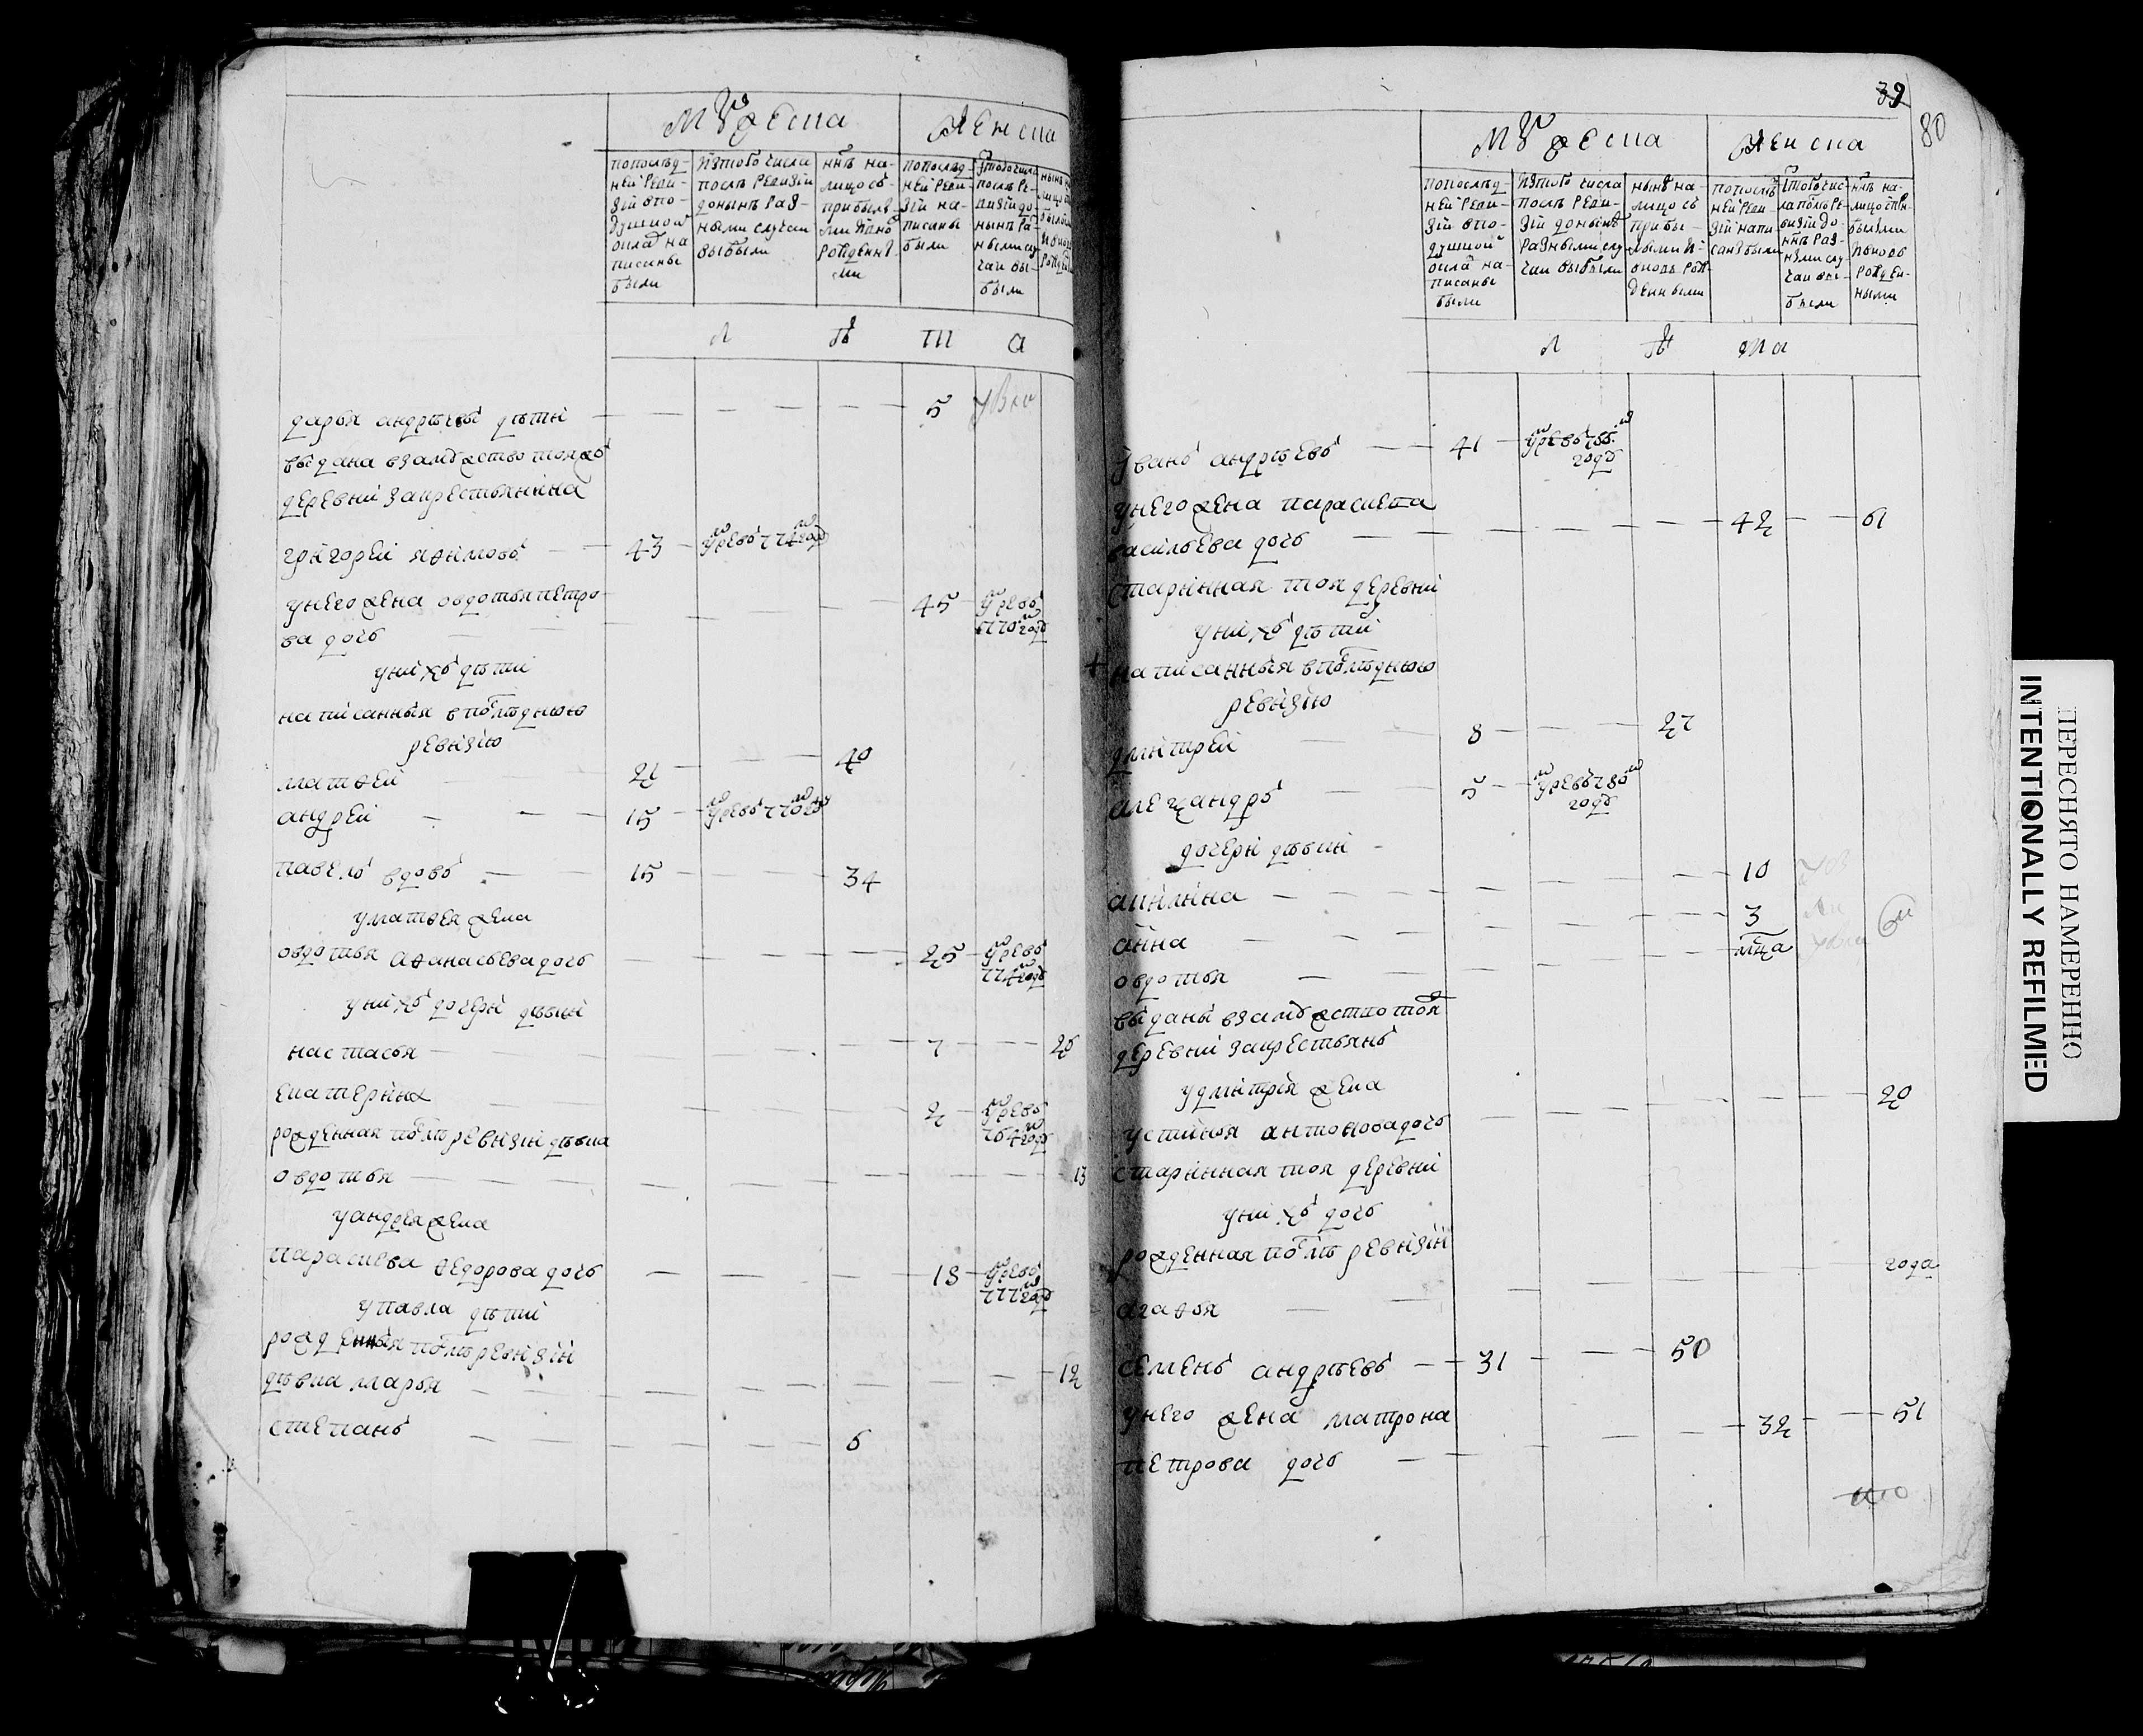 мужеска
женска
попослед-
ней реви-
зіи впо-
душной
окладъ на
писаны
были
изтого числа
послѣ ревизіи
донынѣ раз-
ными случаи
выбыли
ннѣ на-
лицо съ
прибыв-
ми
рожденны
ми
попослед-
ней реви-
зіи на-
писаны
были
послѣ ре-
визіи до-
нынѣ ра-
были
л ѣ т а
дарья андрѣевы дѣти — 5
выдана взамужство тояжъ
деревни закрестьянина
григорей яфимовъ — 43 умре въ 774 году
унего жена овдотья петро-
ва дочь — 45 умре въ 770 году
унихъ дѣти
написанныя впослѣднюю
ревизию
матвей — 21 — 40
андрей — 15
павелъ вдовъ — 15 — 34
уматвея жена
овдотья афанасьева дочь — 25 умре въ 774 году
унихъ дочери дѣвки
настасья — 7 — 26
екатерина — 2
рожденная послѣ ревизіи дѣвка
овдотья — 13
уандрея жена
параскева федорова дочь — 18 умре въ 777 году
упавла дѣти
рожденныя послѣ ревизіи
дѣвка марья — 12
степанъ — 6
39
80
мужеска
женска
попослед-
ней реви-
зіи впо-
душной
окла на-
писаны
были
изтого числа
послѣ реви-
зіи донынѣ
разными слу
чаи выбыли
нынѣ на-
лицо съ
прибы-
лыми и
вновь рож-
денными
попослѣ
ней реви-
зіи напи-
саны были
ла послѣ ре-
визіи до-
ннѣ раз-
ными слу-
чаи вы-
были
ннѣ на-
лицо
былыми
и вновь
рожден-
ными
л ѣ т а
иванъ андрѣевъ — 41
унего жена параскева
васильева дочь — 42 — 61
старинная тоя деревни
унихъ дѣти
написанныя впослѣднюю
ревизию
дмитрей — 8 — 27
александръ — 5
дочери дѣвки
акилина — 10
анна — 3
овдотья — мца
выданы взамужство тояж
деревни закрестьянъ
удмитрія жена
устинья антонова дочь — 20
старинная тоя деревни
унихъ дочь
рожденная послѣ ревизіи
агафья — года
семенъ андрѣевъ — 31 — 50
унего жена матрона
петрова дочь — 32 — 51
ПЕРЕСНЯТО НАМЕРЕННО
INTENTIONALLY REFILMED